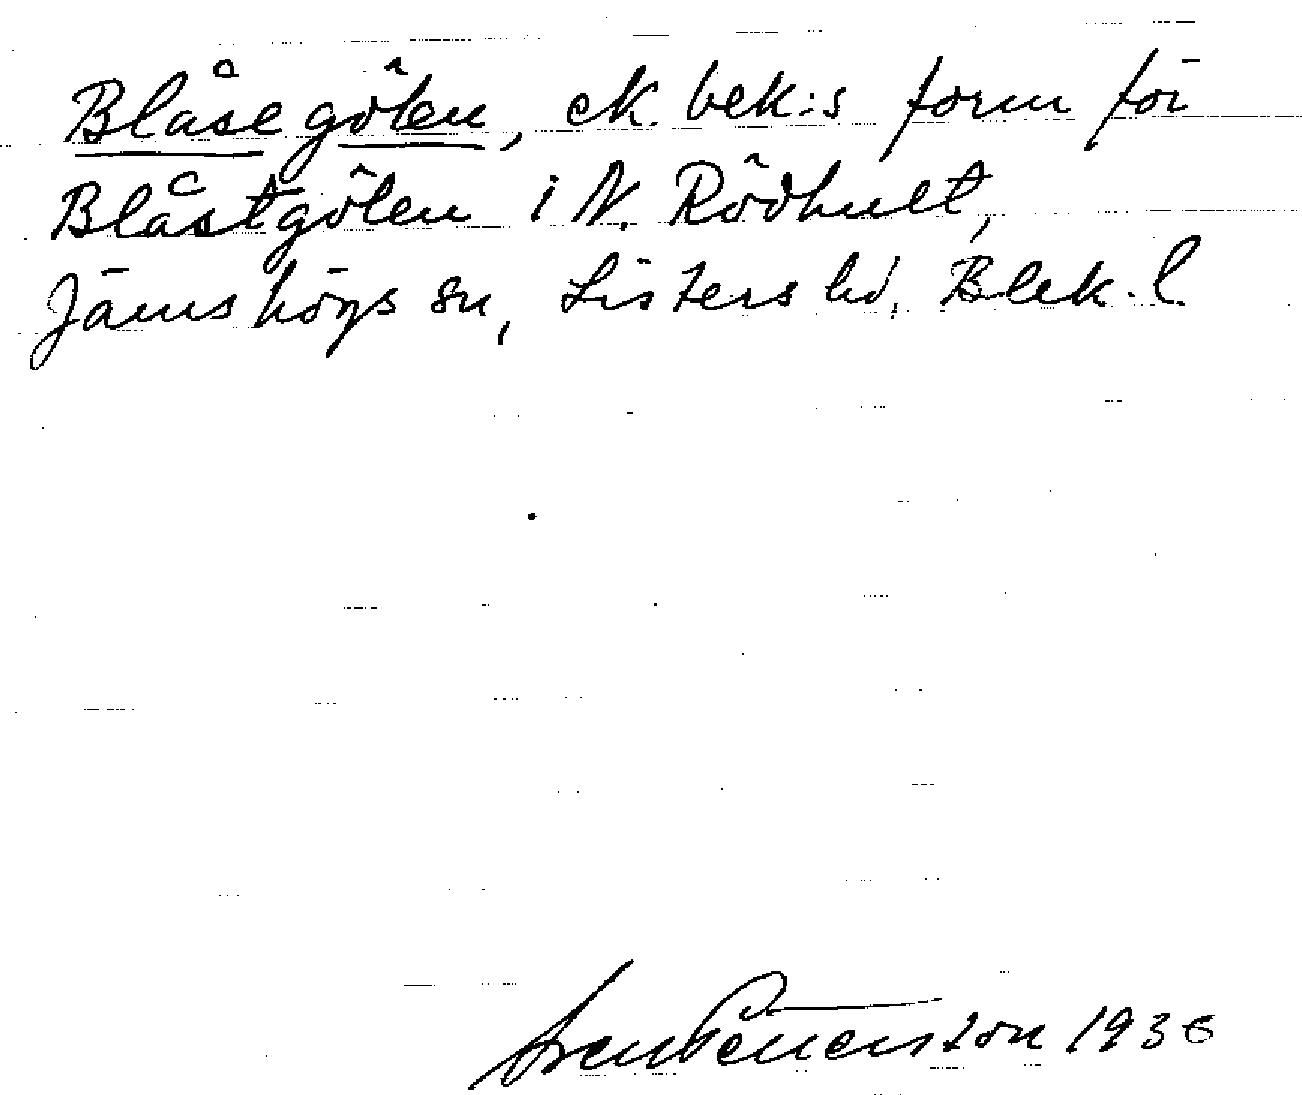 Blåsegölen, ek. bek:s form för
Blåstgölen i N. Rödhult,
Jämshögs sn, Listers hd, Blek. l.
1936